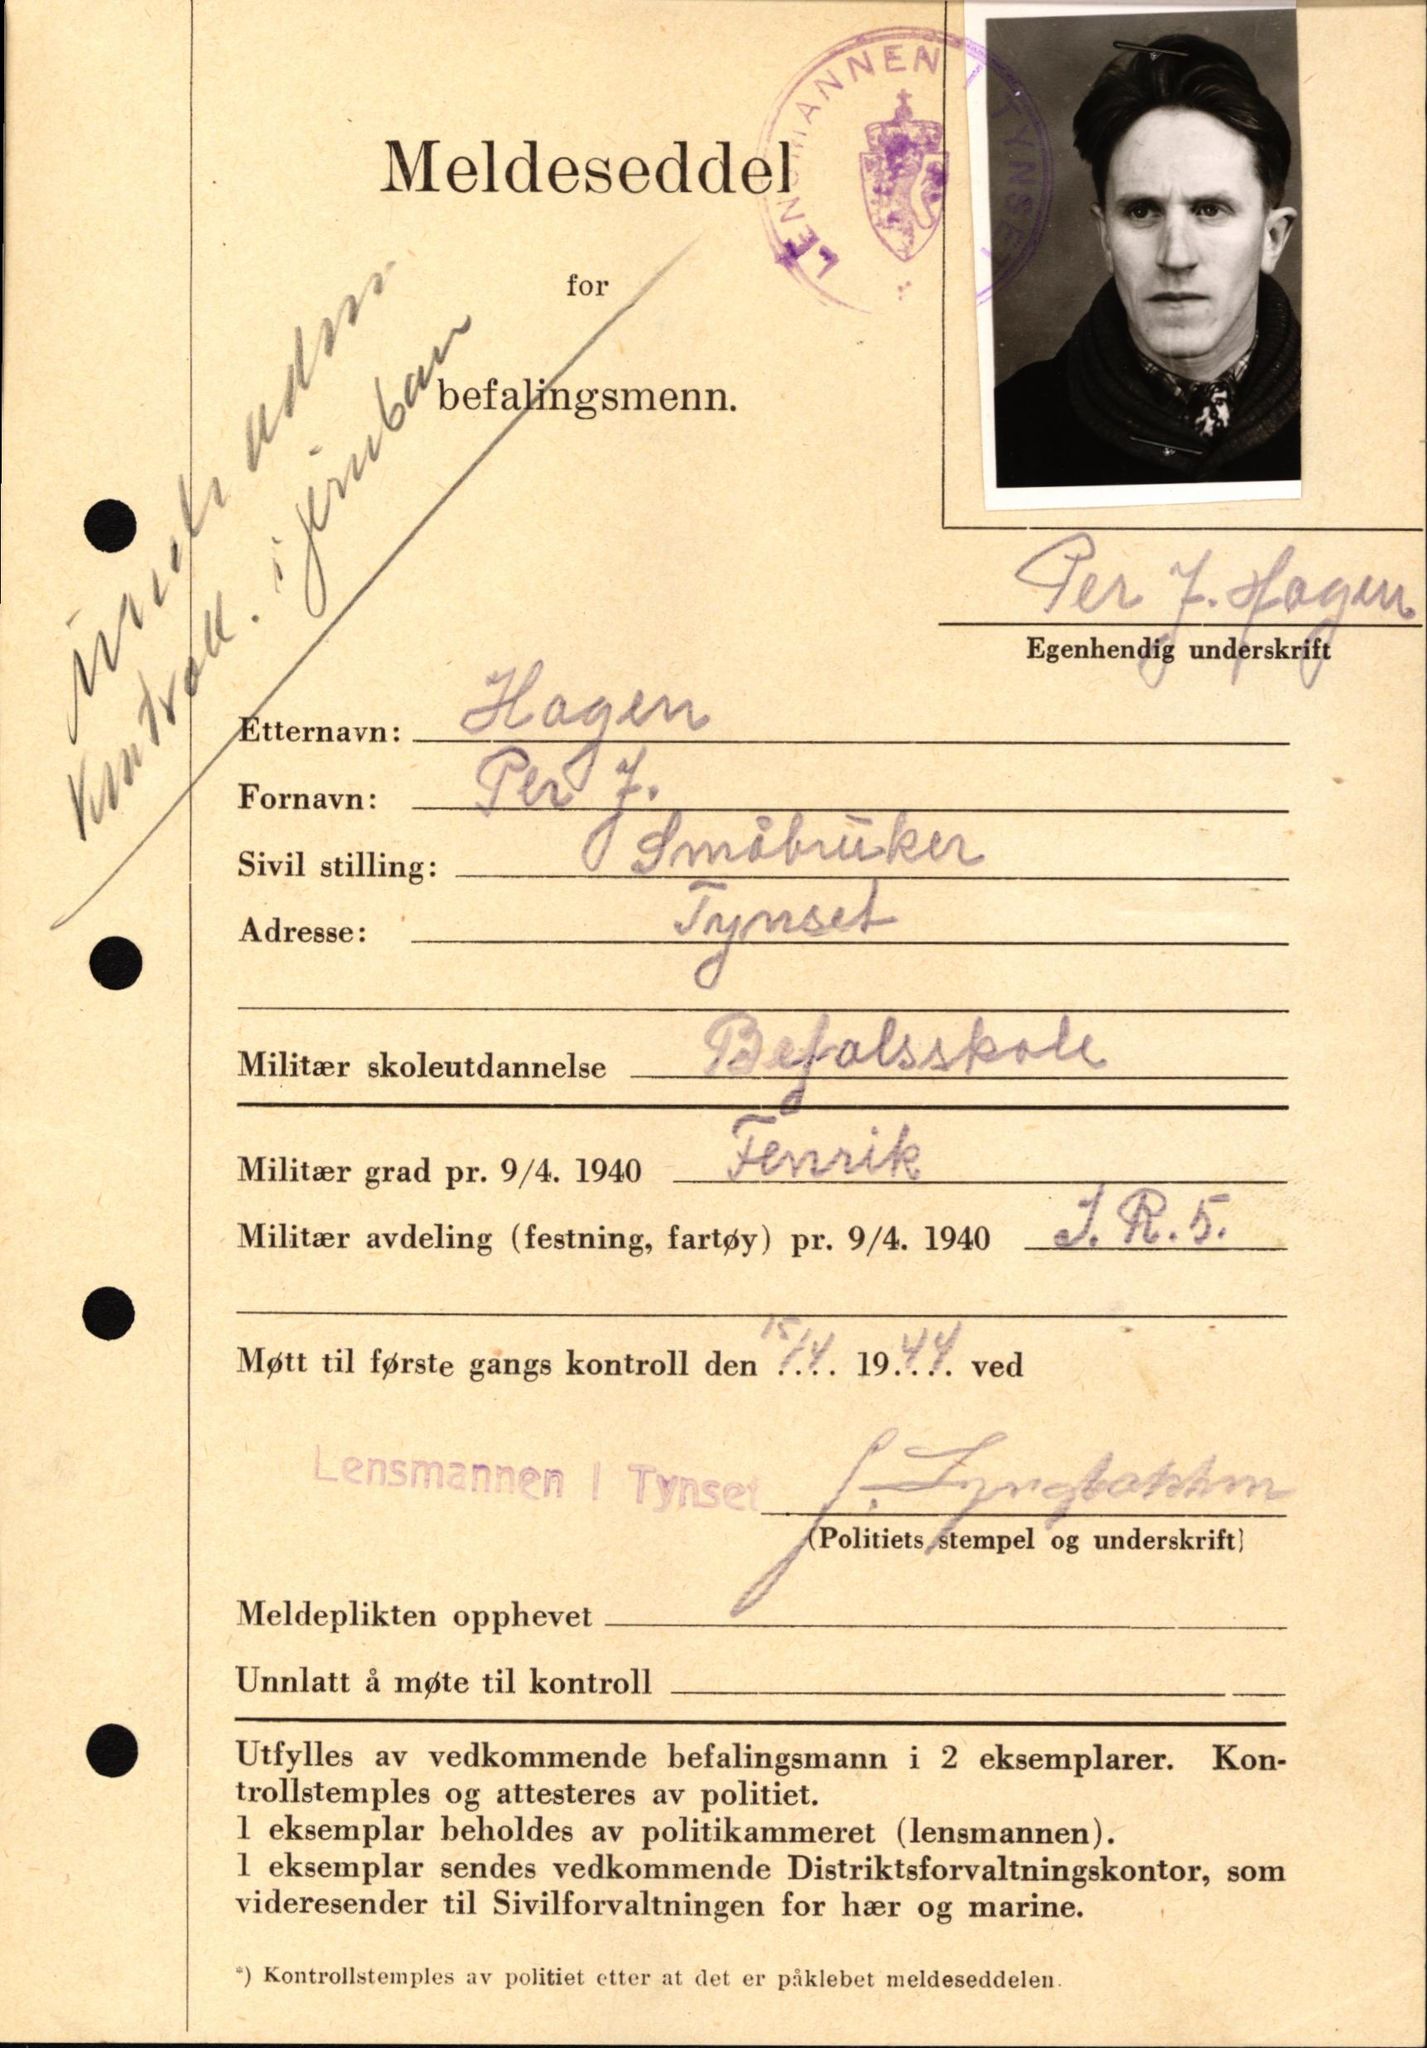 Meldeseddel
for
befalingsmenn.
LENSMANNEN I TYNSET
kontroll. i jernban
Per J. Hagen
Egenhendig underskrift
Etternavn: Hagen
Fornavn: Per J.
Sivil stilling: Småbruker
Adresse: Tynset
Militær skoleutdannelse Befalsskole
Militær grad pr. 9/4. 1940 Fenrik
Militær avdeling (festning, fartøy) pr. 9/4. 1940 I. R. 5.
Møtt til første gangs kontroll den 15/4. 1944 ved
Lensmannen I Tynset
(Politiets stempel og underskrift)
Meldeplikten opphevet
Unnlatt å møte til kontroll
Utfylles av vedkommende befalingsmann i 2 eksemplarer. Kon-
trollstemples og attesteres av politiet.
1 eksemplar beholdes av politikammeret (lensmannen).
1 eksemplar sendes vedkommende Distriktsforvaltningskontor, som
videresender til Sivilforvaltningen for hær og marine.
*) Kontrollstemples av politiet etter at det er påklebet meldeseddelen.